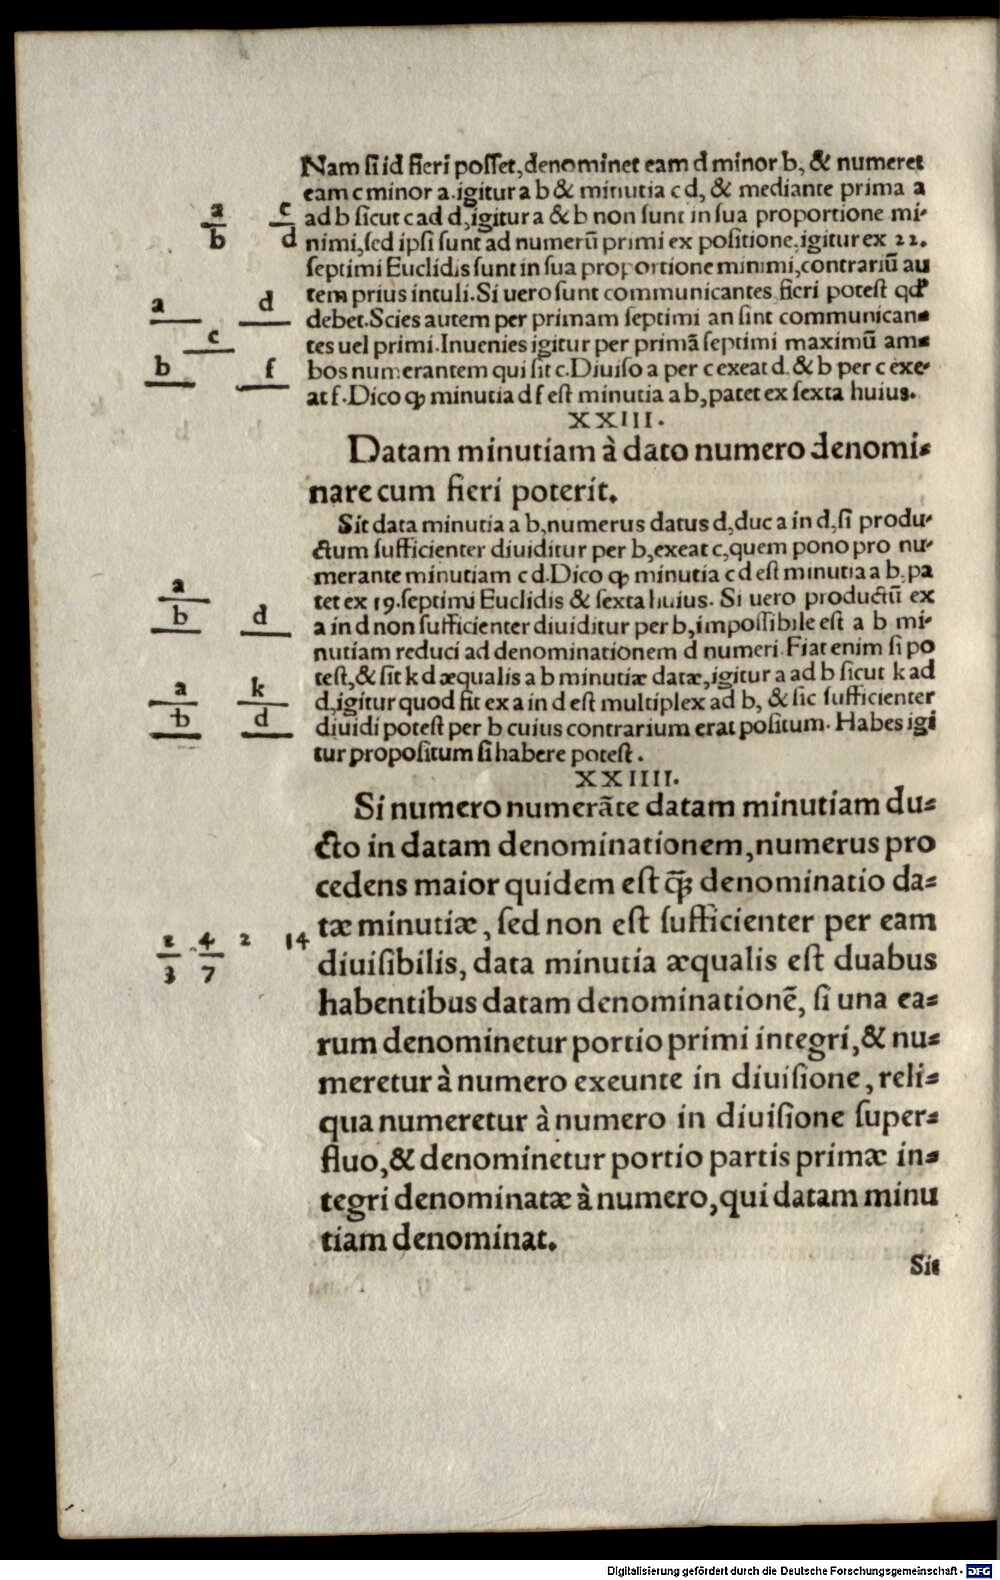 Nam ſi id fieri poſſet, denominet eam d minor b, & numeret
eam c minor a. igitur a b & minutia c d, & mediante prima a
ad b ſicut c ad d, igitur a & b non ſunt in ſua proportione mi-
nimi, ſed ipſi ſunt ad numerū primi ex poſitione, igitur ex 22.
ſeptimi Euclidis ſunt in ſua proportione minimi, contrariū au
tem prius intuli. Si uero ſunt communicantes fieri poteſt qď
debet. Scies autem per primam ſeptimi an ſint communican-
tes uel primi. Inuenies igitur per primā ſeptimi maximū am-
bos numerantem qui ſit c. Diuiſo a per c exeat d. & b per c exe-
at f. Dico ꝙ minutia d f eſt minutia a b, patet ex ſexta huius.
a c
b d
a d
c
b f
XXIII.
Datam minutiam à dato numero denomi-
nare cum fieri poterit.
Sit data minutia a b, numerus datus d, duc a in d, ſi produ-
ctum ſufficienter diuiditur per b, exeat c, quem pono pro nu-
merante minutiam c d. Dico ꝙ minutia c d eſt minutia a b, pa
tet ex 19. ſeptimi Euclidis & ſexta huius. Si uero productū ex
a in d non ſufficienter diuiditur per b, impoſſibile eſt a b mi-
nutiam reduci ad denominationem d numeri. Fiat enim ſi po
teſt, & ſit k d æqualis a b minutiæ datæ, igitur a ad b ſicut k ad
d, igitur quod fit ex a in d eſt multiplex ad b, & ſic ſufficienter
diuidi poteſt per b cuius contrarium erat poſitum. Habes igi
tur propoſitum ſi habere poteſt.
a
b d
a k
b d
XXIIII.
Si numero numerāte datam minutiam du-
cto in datam denominationem, numerus pro
cedens maior quidem eſt ꝗ̃ꝫ denominatio da-
tæ minutiæ, ſed non eſt ſufficienter per eam
diuiſibilis, data minutia æqualis eſt duabus
habentibus datam denominationē, ſi una ea-
rum denominetur portio primi integri, & nu-
meretur à numero exeunte in diuiſione, reli-
qua numeretur à numero in diuiſione ſuper-
fluo, & denominetur portio partis primæ in-
tegri denominatæ à numero, qui datam minu
tiam denominat.
2 4 2 14
3 7
Sit
Digitalisierung gefördert durch die Deutsche Forschungsgemeinschaft - DFG